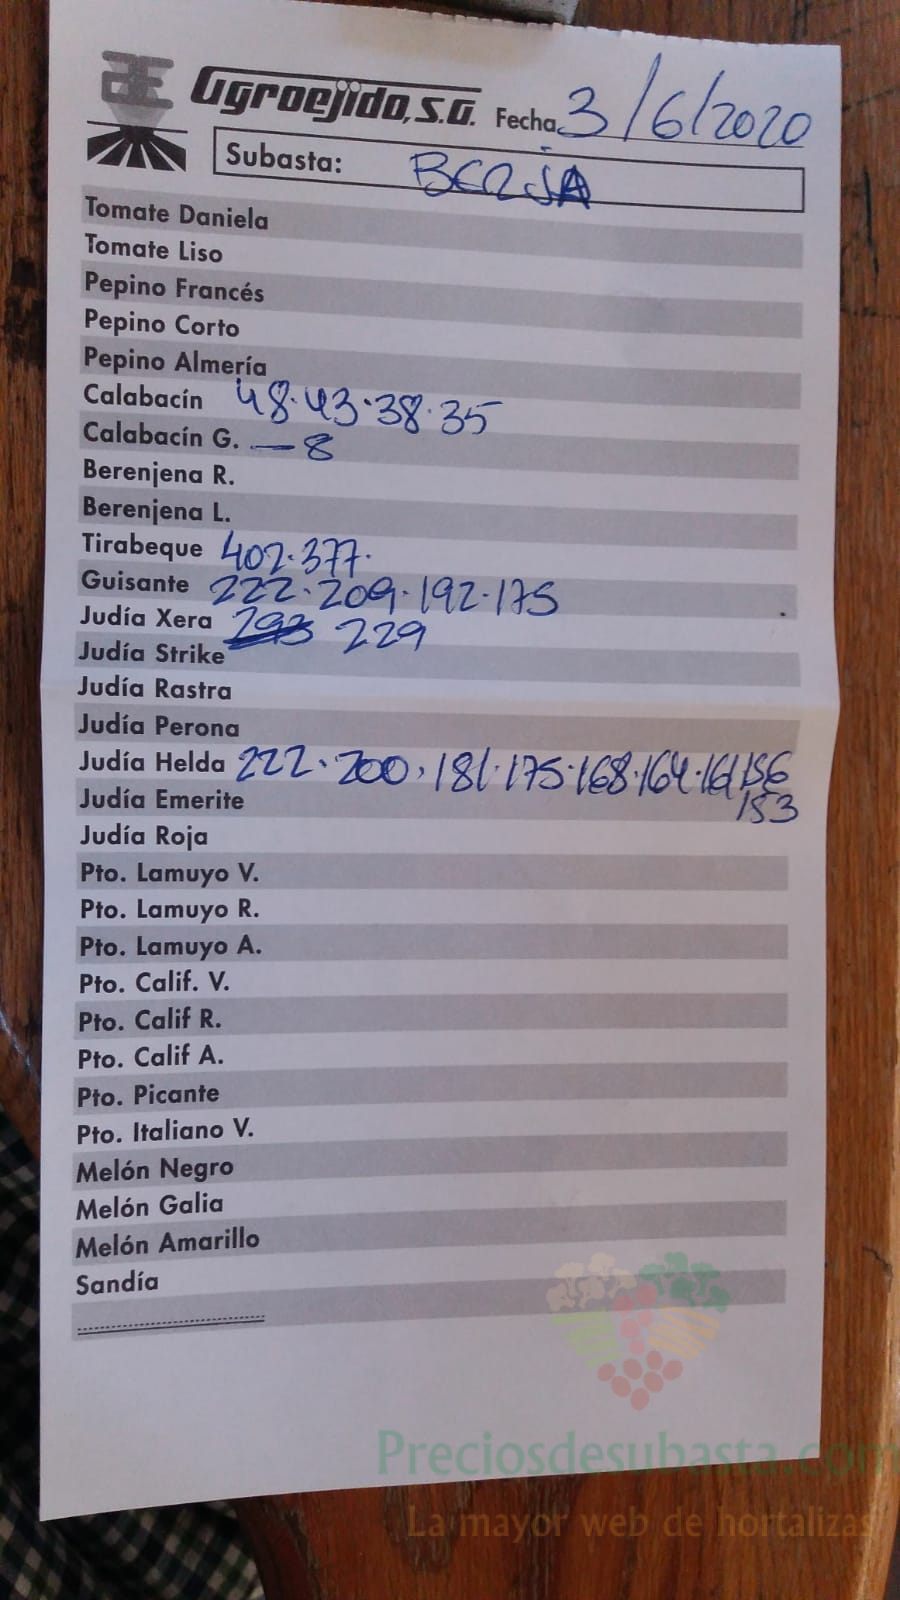 Agroejido, S.A. Fecha 3/6/2020
Subasta: BERJA
Tomate Daniela
Tomate Liso
Pepino Francés
Pepino Corto
Pepino Almería
Calabacín 48·43·38·35
Calabacín G. — 8
Berenjena R.
Berenjena L.
Tirabeque 402·377·
Guisante 222·209·192·175
Judía Xera 293 229
Judía Strike
Judía Rastra
Judía Perona
Judía Helda 222·200·181·175·168·164·161 156
153
Judía Emerite
Judía Roja
Pto. Lamuyo V.
Pto. Lamuyo R.
Pto. Lamuyo A.
Pto. Calif. V.
Pto. Calif R.
Pto. Calif A.
Pto. Picante
Pto. Italiano V.
Melón Negro
Melón Galia
Melón Amarillo
Sandía
Preciosdesubasta.com
La mayor web de hortalizas